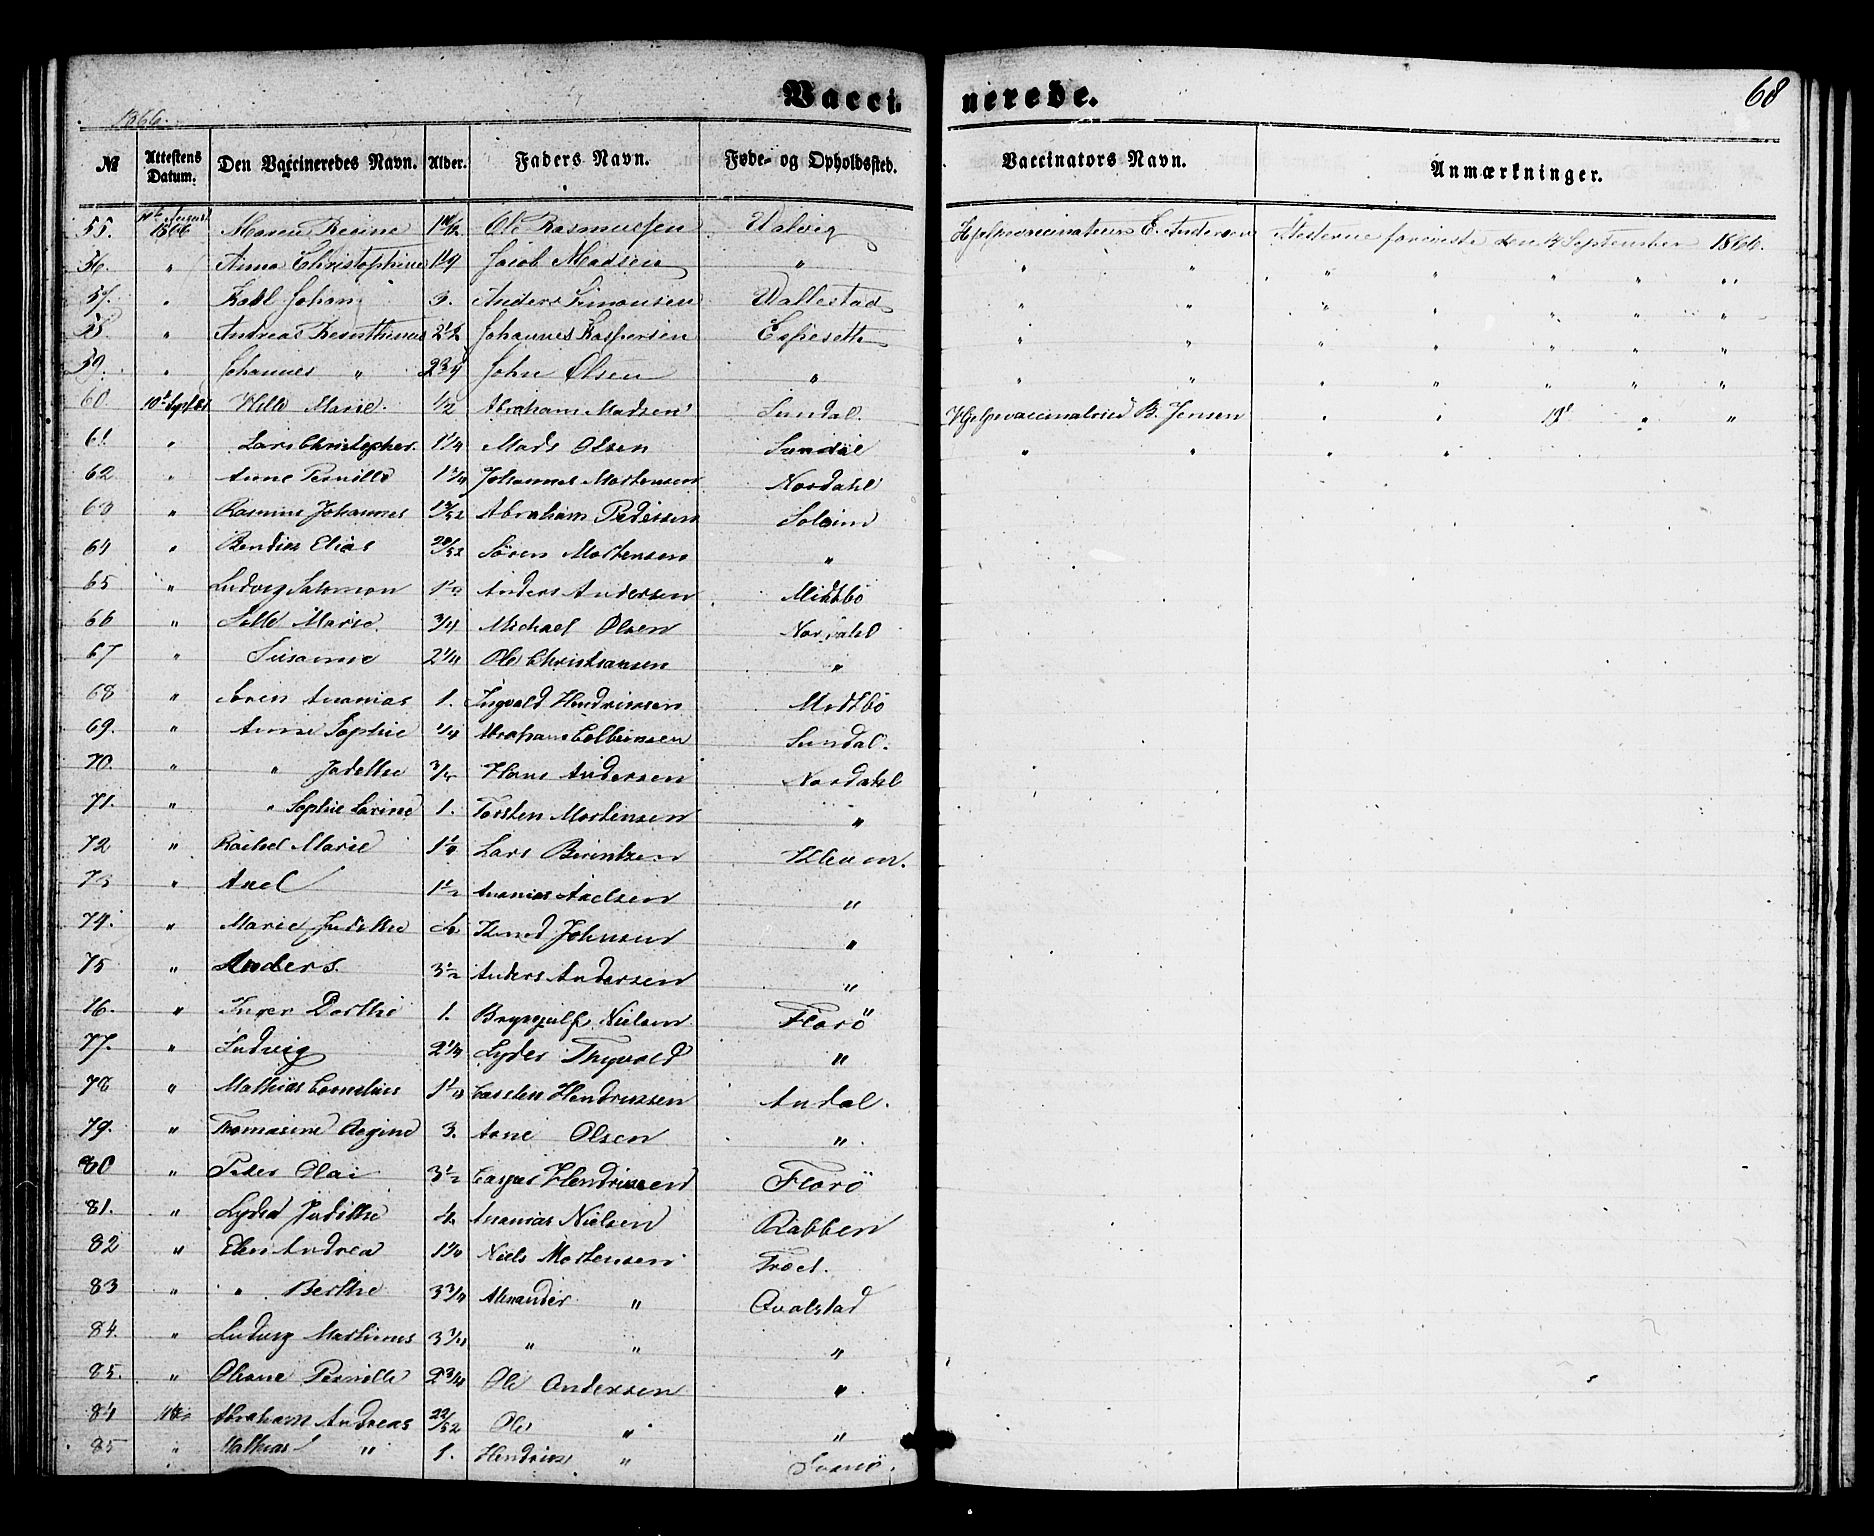 Vaccinerede.
68
1866.
№ Attestens Datum. Den Vaccineredes Navn. Alder. Faders Navn. Føde- og Opholdssted. Vaccinators Navn. Anmærkninger.
55. 1866 Maren Regine Ole Rasmussen Valvig Hjelpevaccinateur E. Andersen Attesterne foreviste den September 1866.
56. " Anna Christophine 1 1/4 Jacob Madsen " " " " " " " "
57. " Karl Johan 3. Anders Simonsen Vallestad " " " " " " "
58. " Andreas 2 1/2 Johannes Kaspersen Espesette " " " " " " "
59. " Johannes " 2 3/4 John Olsen " " " " " " " "
60. 10de Septbr Marie. 1/2 Abraham Madsen Sundal. B. Jensen " " " "
61. " Lars Christopher. 1 1/4 Mads Olsen Sundal " " " "
62 " Anne Pernille 1 1/4 Johannes Mortensen Nordahl
63 " Rasmus Johannes Abraham Pedersen Soleim
64 " Bendix Elias 20/52 Sören Mortensen "
65 " Ludvig Salomon 1 1/2 Anders Andersen Midtbö
66 " Marie. 3/4 Michael Olsen Nordahl
67 " Susanne 2 1/4 Ole Christiansen "
68 " Sören Ananias 1. Ingvald Hendriksen Midtbö
69. " Anne Sophie 1/4 Abraham Sundal.
70. " " Judithe Hans Andersen Nordahl
71. " " Sophie Larine 1. Torsten Mortensen "
72 " Rachel Marie Lars Berentsen
73 " Axel 1 1/2 Ananias Axelsen "
74. " Marie Judithe Knud Johnsen "
75 " Anders. 3 1/2 Anders Andersen "
76. " Inger Dorthe 1. Nielsen Florö
77. " Ludvig 2 1/4 Lyder "
78 " Mathias Cornelius Carsten Hendriksen Andal.
79. " Thomasine Regine 3. Arne Olsen "
80 " Peder Olai 3 1/2 Casper Hendriksen Florö
81. " Lydea Judithe 4. Ananias Nielsen Rabben
82 " Elen Andrea Niels Mortensen
83 " " Berthe 3 3/4 Alexander "
84. " Ludvig Mathias 3 3/4 " " "
85. " Oliane Pernille 2 3/4 Ole Andersen "
84 Abraham Andreas 22/52 Ole " "
85 " Mathias " 1. Hendrik " Svanö.